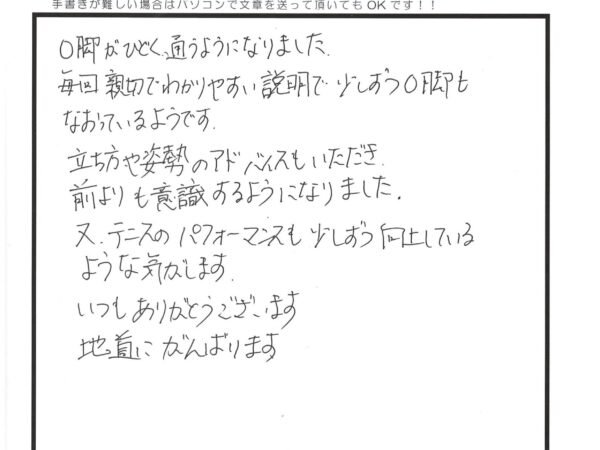 手書きが難しい場合はパソコンで文章を送って頂いてもOKです！！
O脚がひどく、通うようになりました。
毎回親切でわかりやすい説明で少しずつO脚も
なおっているようです。
立ち方や姿勢のアドバイスもいただき
前よりも意識するようになりました。
又、テニスのパフォーマンスも少しずつ向上している
ような気がします。
いつもありがとうございます
地道にがんばります